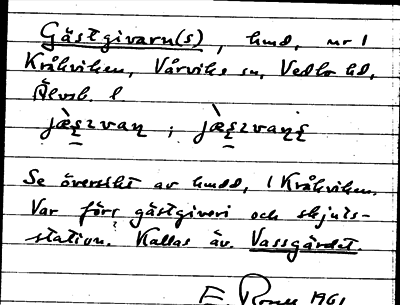 Gästgivarn(s), hmd, nr 1
Kråkviken, Vårviks sn, Vedbo hd,
Älvsb. l.
jæ̀ʂɪvaɳ ; jæ̀ʂɪvaɳʂ
Se översikt av hmdd, 1 Kråkviken.
Var förr gästgiveri och skjuts-
station. Kallas äv. Vassgärdet.
E. 1961